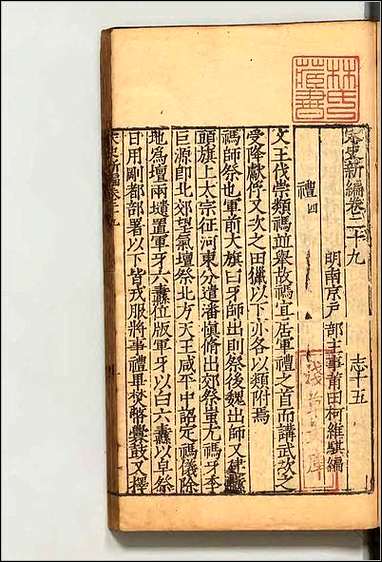 宋史新編卷二十九　志十五
明南京戶部主事莆田柯維騏編
禮四
文王伐崇類禡並舉故禡宜居軍禮之首而講武次之
受降獻俘又次之田獵以下亦各以類附焉
禡師祭也軍前大旗曰牙師出則祭後魏出師又建纛
頭旗上太宗征河東分遣潘慎脩出郊祭蚩尤禡牙李
巨源即北郊望氣壇祭北方天王咸平中詔定禡儀除
地為壇兩壝置軍牙六纛位版軍牙以白六纛以皁祭
甘用剛都部署以下皆戎服將事禮畢焚幣釁鼓又擇
宋史新編卷二十九
林氏藏書